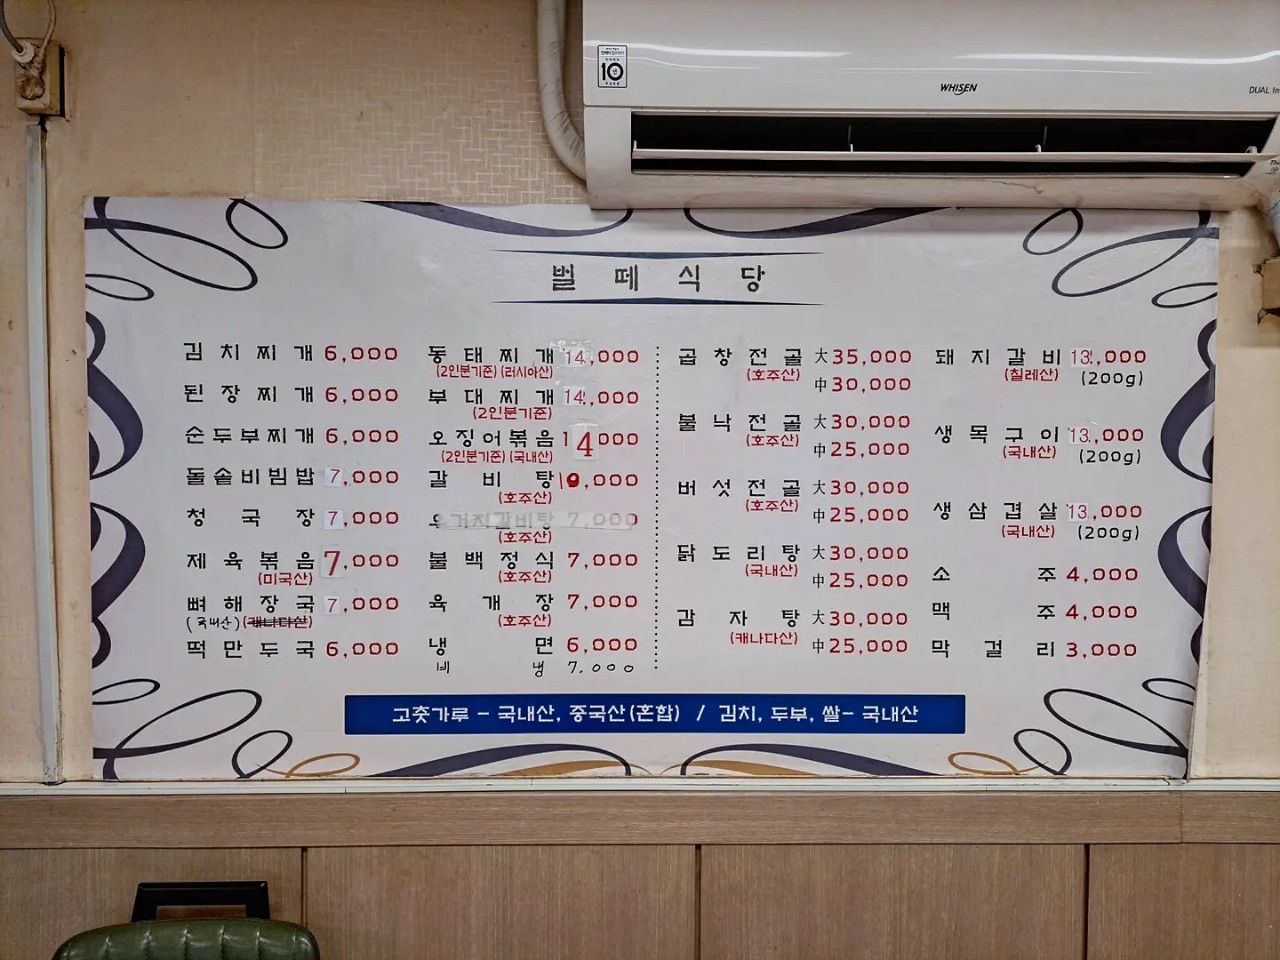 WHISEN
DUAL In
10
벌떼식당
김치찌개 6,000
된장찌개 6,000
순두부찌개 6,000
돌솥비빔밥 7,000
청국장 7,000
제육볶음 7,000
(미국산)
뼈해장국 7,000
(국내산) (캐나다산)
떡만두국 6,000
동태찌개 14,000
(2인분기준) (러시아산)
부대찌개 14,000
(2인분기준)
오징어볶음 14,000
(2인분기준) (국내산)
갈비탕 10,000
(호주산)
우거지갈비탕 7,000
(호주산)
불백정식 7,000
(호주산)
육개장 7,000
(호주산)
냉면 6,000
비냉 7.000
곱창전골 大 35,000
(호주산) 中 30,000
불낙전골 大 30,000
(호주산) 中 25,000
버섯전골 大 30,000
(호주산) 中 25,000
닭도리탕 大 30,000
(국내산) 中 25,000
감자탕 大 30,000
(캐나다산) 中 25,000
돼지갈비 13,000
(칠레산) (200g)
생목구이 13,000
(국내산) (200g)
생삼겹살 13,000
(국내산) (200g)
소주 4,000
맥주 4,000
막걸리 3,000
고춧가루 - 국내산, 중국산(혼합) / 김치, 두부, 쌀- 국내산